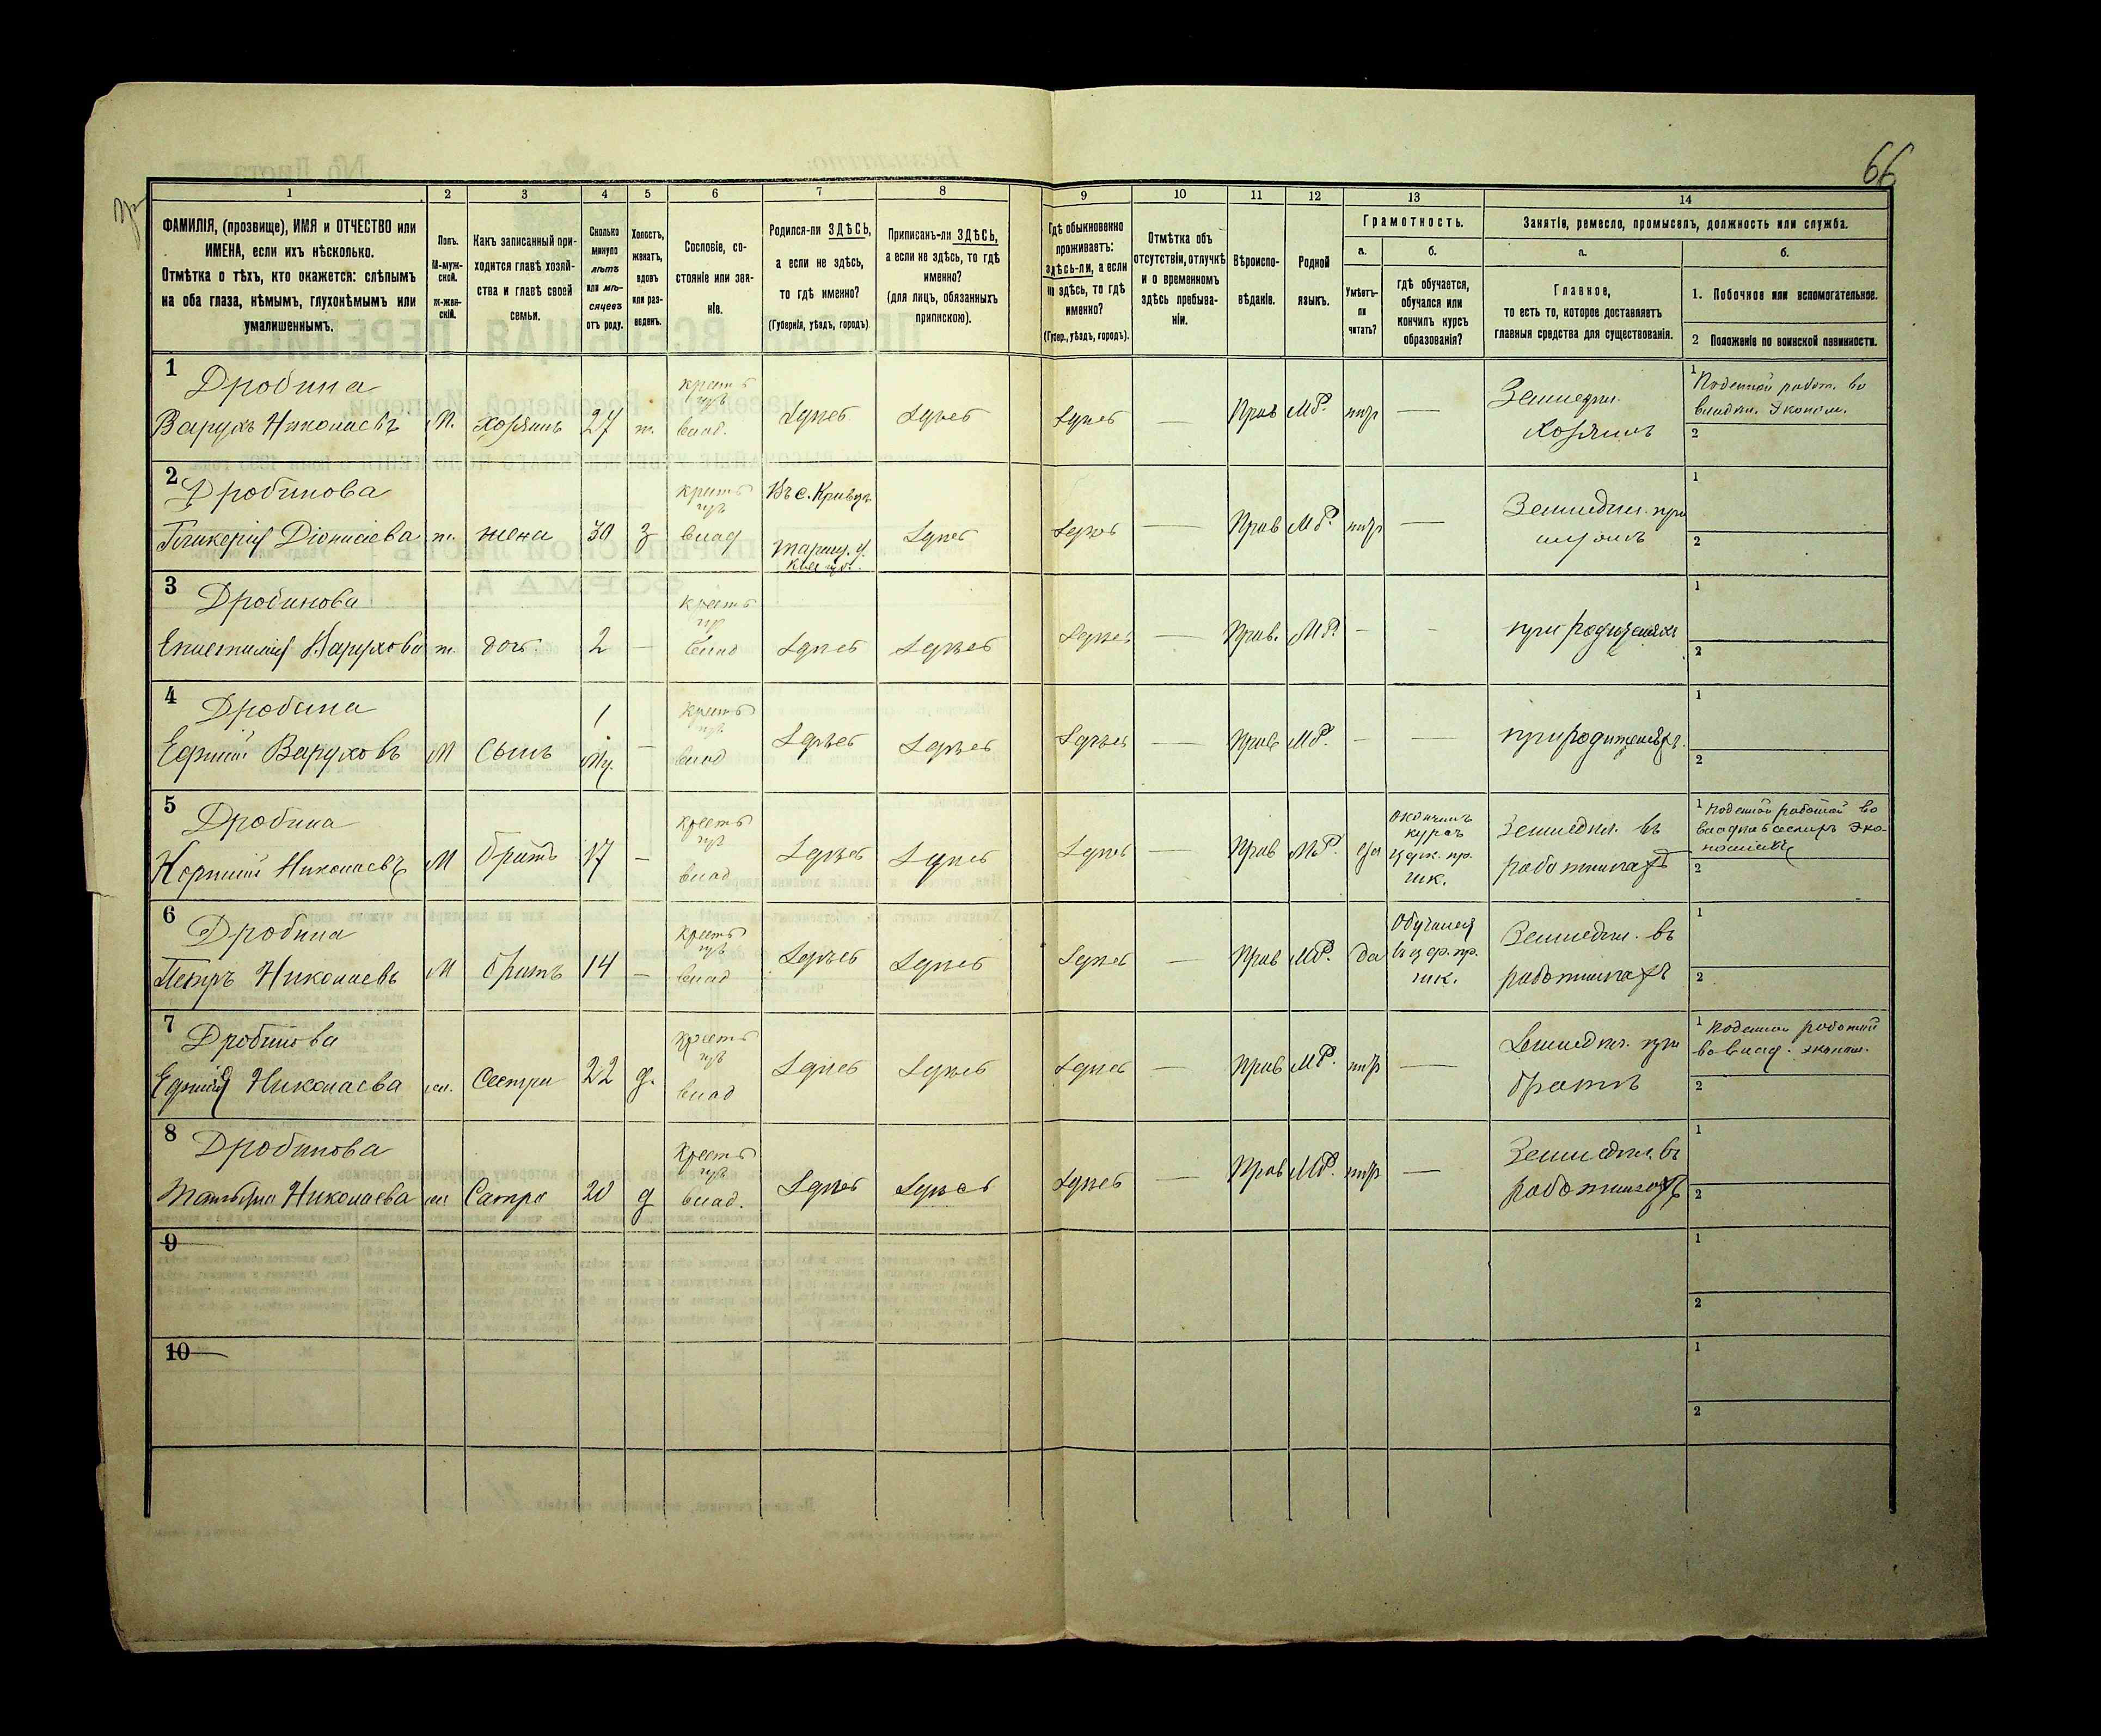 66
1
2
3
4
5
6
7
8
9
10
11
12
13
14
ФАМИЛІЯ, (прозвище), ИМЯ и ОТЧЕСТВО или
ИМЕНА, если ихъ нѣсколько.
Отмѣтка о тѣхъ, кто окажется: слѣпымъ
на оба глаза, нѣмымъ, глухонѣмымъ или
умалишеннымъ.
Полъ.
М-муж-
ской.
ж-жен-
скій.
Какъ записанный при-
ходится главѣ хозяй-
ства и главѣ своей
семьи.
Сколько
минуло
лѣтъ
или мѣ-
сяцевъ
отъ роду.
Холостъ,
женатъ,
вдовъ
или раз-
веденъ.
Сословіе, со-
стояніе или зва-
ніе.
Родился-ли ЗДѢСЬ,
а если не здѣсь,
то гдѣ именно?
(Губернія, уѣздъ, городъ)
Приписанъ-ли ЗДѢСЬ,
а если не здѣсь, то гдѣ
именно?
(для лицъ, обязанныхъ
припискою).
Гдѣ обыкновенно
проживаетъ:
здѣсь-ли, а если
не здѣсь, то гдѣ
именно?
(Губер., уѣздъ, городъ).
Отмѣтка объ
отсутствіи, отлучкѣ
и о временномъ
здѣсь пребыва-
ніи.
Вѣроиспо-
вѣданіе.
Родной
языкъ.
Грамотность.
а.
Умѣетъ-
ли
читать?
б.
гдѣ обучается,
обучался или
кончилъ курсъ
образованія?
Занятіе, ремесло, промыселъ, должность или служба.
а.
Главное,
то есть то, которое доставляетъ
главныя средства для существованія.
б.
1. Побочное или вспомогательное.
2 Положеніе по воинской повинности.
1
Дробина
Варухъ Николаевъ
М.
хозяинъ
27
ж.
крестъ
влад.
Здѣсь
Здѣсь
Здѣсь
—
Прав
МР.
—
Земледѣл.
хозяинъ
1 Поденной работ. во
владѣл. Эконом.
2
2
Дробинова
Гликерія Діонисіева
ж.
жена
30
з
крестъ
влад
Въ с. Кривцъ
Таращ. у.
Кіев губ.
Здѣсь
Здѣсь
—
Прав
МР.
—
Земледѣл. при
мужѣ
1
2
3
Дробинова
Епистимія Варухова
ж.
доч.
2
—
крестъ
влад
Здѣсь
Здѣсь
Здѣсь
—
Прав.
МР.
-
-
при родителяхъ
1
2
4
Дробина
Ефимій Варуховъ
М
Сынъ
1
—
крестъ
влад
Здѣсь
Здѣсь
Здѣсь
—
Прав
МР.
-
—
при родителяхъ.
1
2
5
Дробина
Корнилій Николаевъ
М
братъ
17
—
крестъ
влад
Здѣсь
Здѣсь
Здѣсь
—
Прав
МР.
да
окончилъ
курсъ
церк. пр.
шк.
Земледѣл. въ
работникахъ
1 Поденной работой во
Эко-
2
6
Дробина
Петръ Николаевъ
М
братъ
14
—
крестъ
влад
Здѣсь
Здѣсь
Здѣсь
—
Прав
МР.
да
Обучался
въ цер. пр.
шк.
Земледѣл. въ
работникахъ
1
2
7
Дробинова
Николаева
ж.
Сестра
22
д.
крестъ
влад
Здѣсь
Здѣсь
Здѣсь
—
Прав
МР.
—
Земледѣл. при
братѣ
1 Поденной работой
во влад. эконом.
2
8
Дробинова
Татьяна Николаева
ж.
Сестра
20
д
крестъ
влад.
Здѣсь
Здѣсь
Здѣсь
—
Прав
МР.
—
Земледѣл. въ
работникахъ
1
2
9
1
2
10
1
2